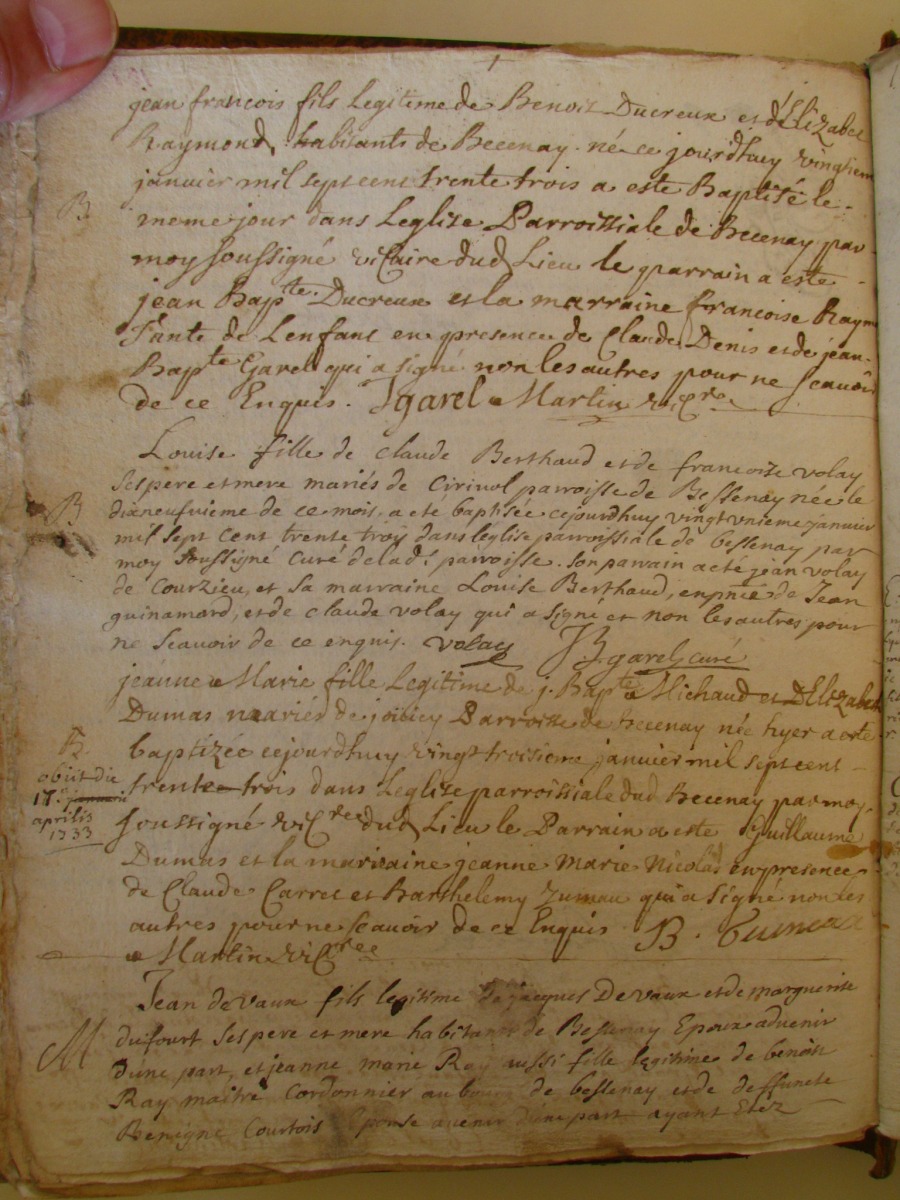 jean francois fils Legitime de Benoit Ducreux et d'Elizabet
Raymond, habitants de Becenay. né ce jourdhuy vingtiem
janvier mil sept cent trente trois a este Baptisé le
B
meme jour dans Leglise Parroissiale de Becenay par
moy soussigné vicaire dud Lieu le parrain a este
jean Bapte Ducreux et la marraine francoise Raym
Tante de Lenfant en presence de Claude Denis et de jean
Bapte Garel qui a signé non les autres pour ne scavoir
de ce Enquis. Jgarel Martin vicre
Louise fille de claude Berthaud et de francoise volay
ses pere et mere mariés de Cirivol parroisse de Bessenay née le
B
dixneufvieme de ce mois, a eté baptisée cejourdhuy vingt unieme janvier
mil sept cent trente troy dans leglise parroissiale de bessenay par
moy soussigné curé de lad. parroisse. son parrain a eté jean volay
de Courzieu, et sa marraine Louise Berthaud, en pnce de Jean
guinamard, et de claude volay qui a signé et non les autres pour
ne scavoir de ce enquis. volay JBgarel curé
jeanne Marie fille Legitime de j. Bapte Michaud et DElizabet
Dumas mariés de Parroisse de Becenay née hyer a este
B
baptizée cejourdhuy vingt troisieme janvier mil sept cent
obiit die
17a januarii
aprilis
1733
trente trois dans Leglise parroissiale dud Becenay par moy
soussigné vicre dud Lieu le Parrain a este Guillaume
Dumas et la marraine jeanne Marie Nicolas en presence
de Claude Carret et Barthelemy Zumeau qui a signé non les
autres pour ne scavoir de ce Enquis B.
Martin vicre
Jean devaux fils legitime de jacques Devaux et de marguerite
dufourt ses pere et mere habitants de Bessenay Epoux advenir
M
dune part, et jeanne marie Ray aussi fille legitime de benoist
Ray maitre Cordonnier au bourg de bessenay et de deffuncte
Benigne Courtois Epouse avenir dune part ayant Etez